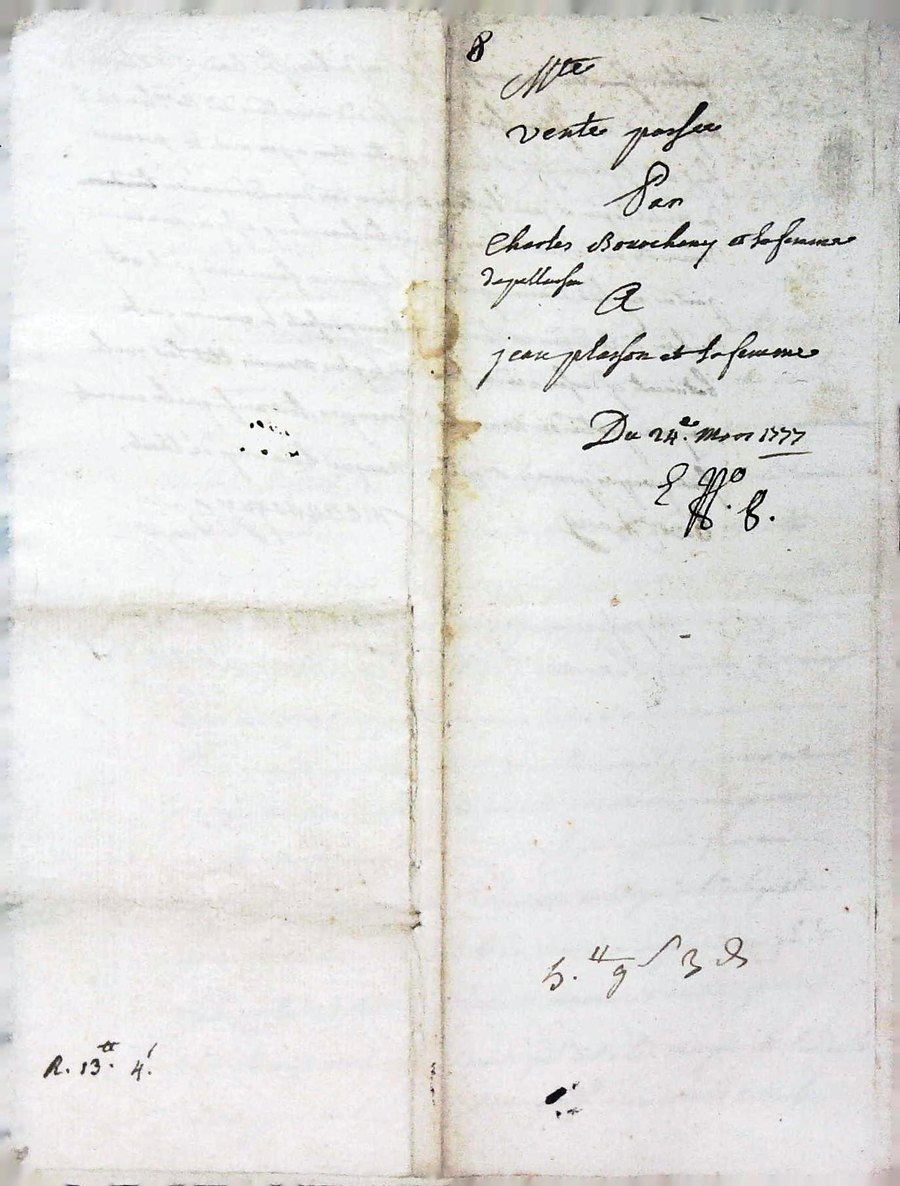 8
Mte
vente passee
Par
Charles Bourcheny et sa femme
A
jean plasson et sa femme
Du 24e. Mars 1777
5.tt 9 s 3 d
R. 13.tt 4.s